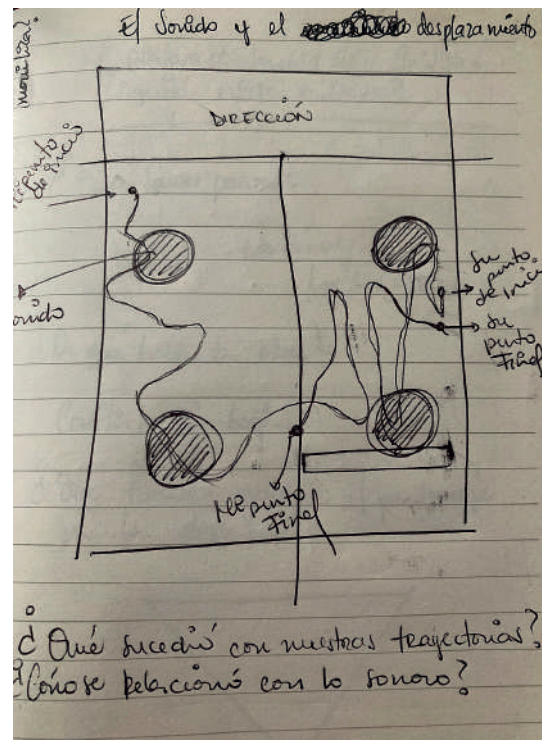 El sonido y el desplazamiento
DIRECCIÓN
punto
de inicio
su
punto
de inicio
su
punto
Final
Mi punto
Final
¿Qué sucedió con nuestras trayectorias?
¿Cómo se relacionó con lo sonoro?